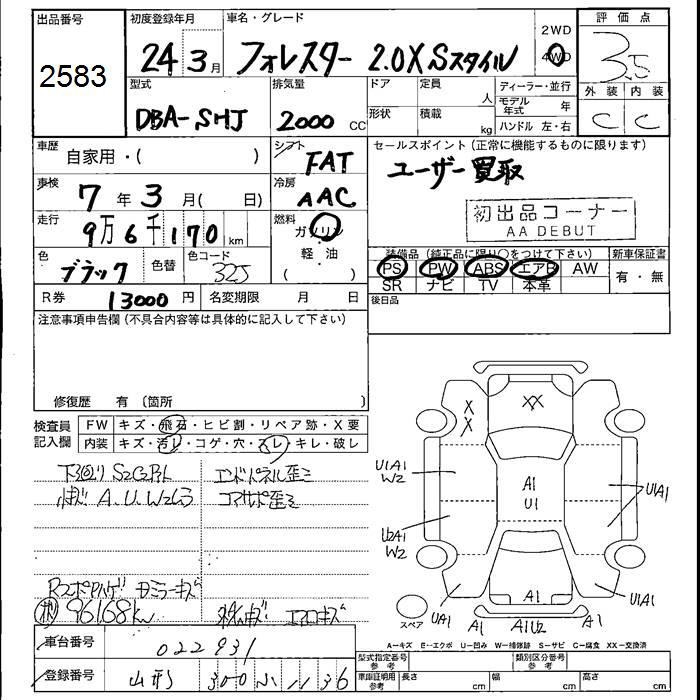 出品番号
2583
初度登録年月
24 3月
車名・グレード
フォレスター 2.0X Sスタイル
2WD
4WD
評価点
3.5
外装 内装
C C
型式
DBA-SHJ
排気量
2000 CC
ドア
定員 人
形状
積載 kg
ディーラー・並行
モデル年式 年
ハンドル 左・右
車歴
自家用・( )
シフト
FAT
セールスポイント(正常に機能するものに限ります)
ユーザー買取
初出品コーナー
AA DEBUT
車検
7年3月(日)
冷房
AAC
走行
9万6千170km
燃料
ガソリン
軽・油
色
ブラック
色替
色コード
32J
装備品(純正品に限り○をつけて下さい)
PS PW ABS エアB AW
SR ナビ TV 本革
新車保証書
有・無
R券 13000円
名変期限 月 日
後日品
注意事項申告欄(不具合内容等は具体的に記入して下さい)
修復歴 有(箇所 )
検査員記入欄
FW キズ・飛石・ヒビ割・リペア跡・X要
内装 キズ・汚レ・コゲ・穴・スレ・キレ・破レ
下廻り
A.U.W
エンドパネル歪ミ
コアサポ歪ミ
96168km
エアロキズ
車台番号
022931
登録番号
山形 300 ふ 1136
XX
X
X
U1A1
W2
U2A1
W2
A1
U1
U1A1
U1A1
UA1
A1
A1
A1U2
A1
スペア
A=キズ E=エクボ U=凹み W=補修跡 S=サビ C=腐食 XX=交換済
型式指定番号 参考
類別区分番号 参考
車庫証明用 参考
長さ cm
幅 cm
高さ cm